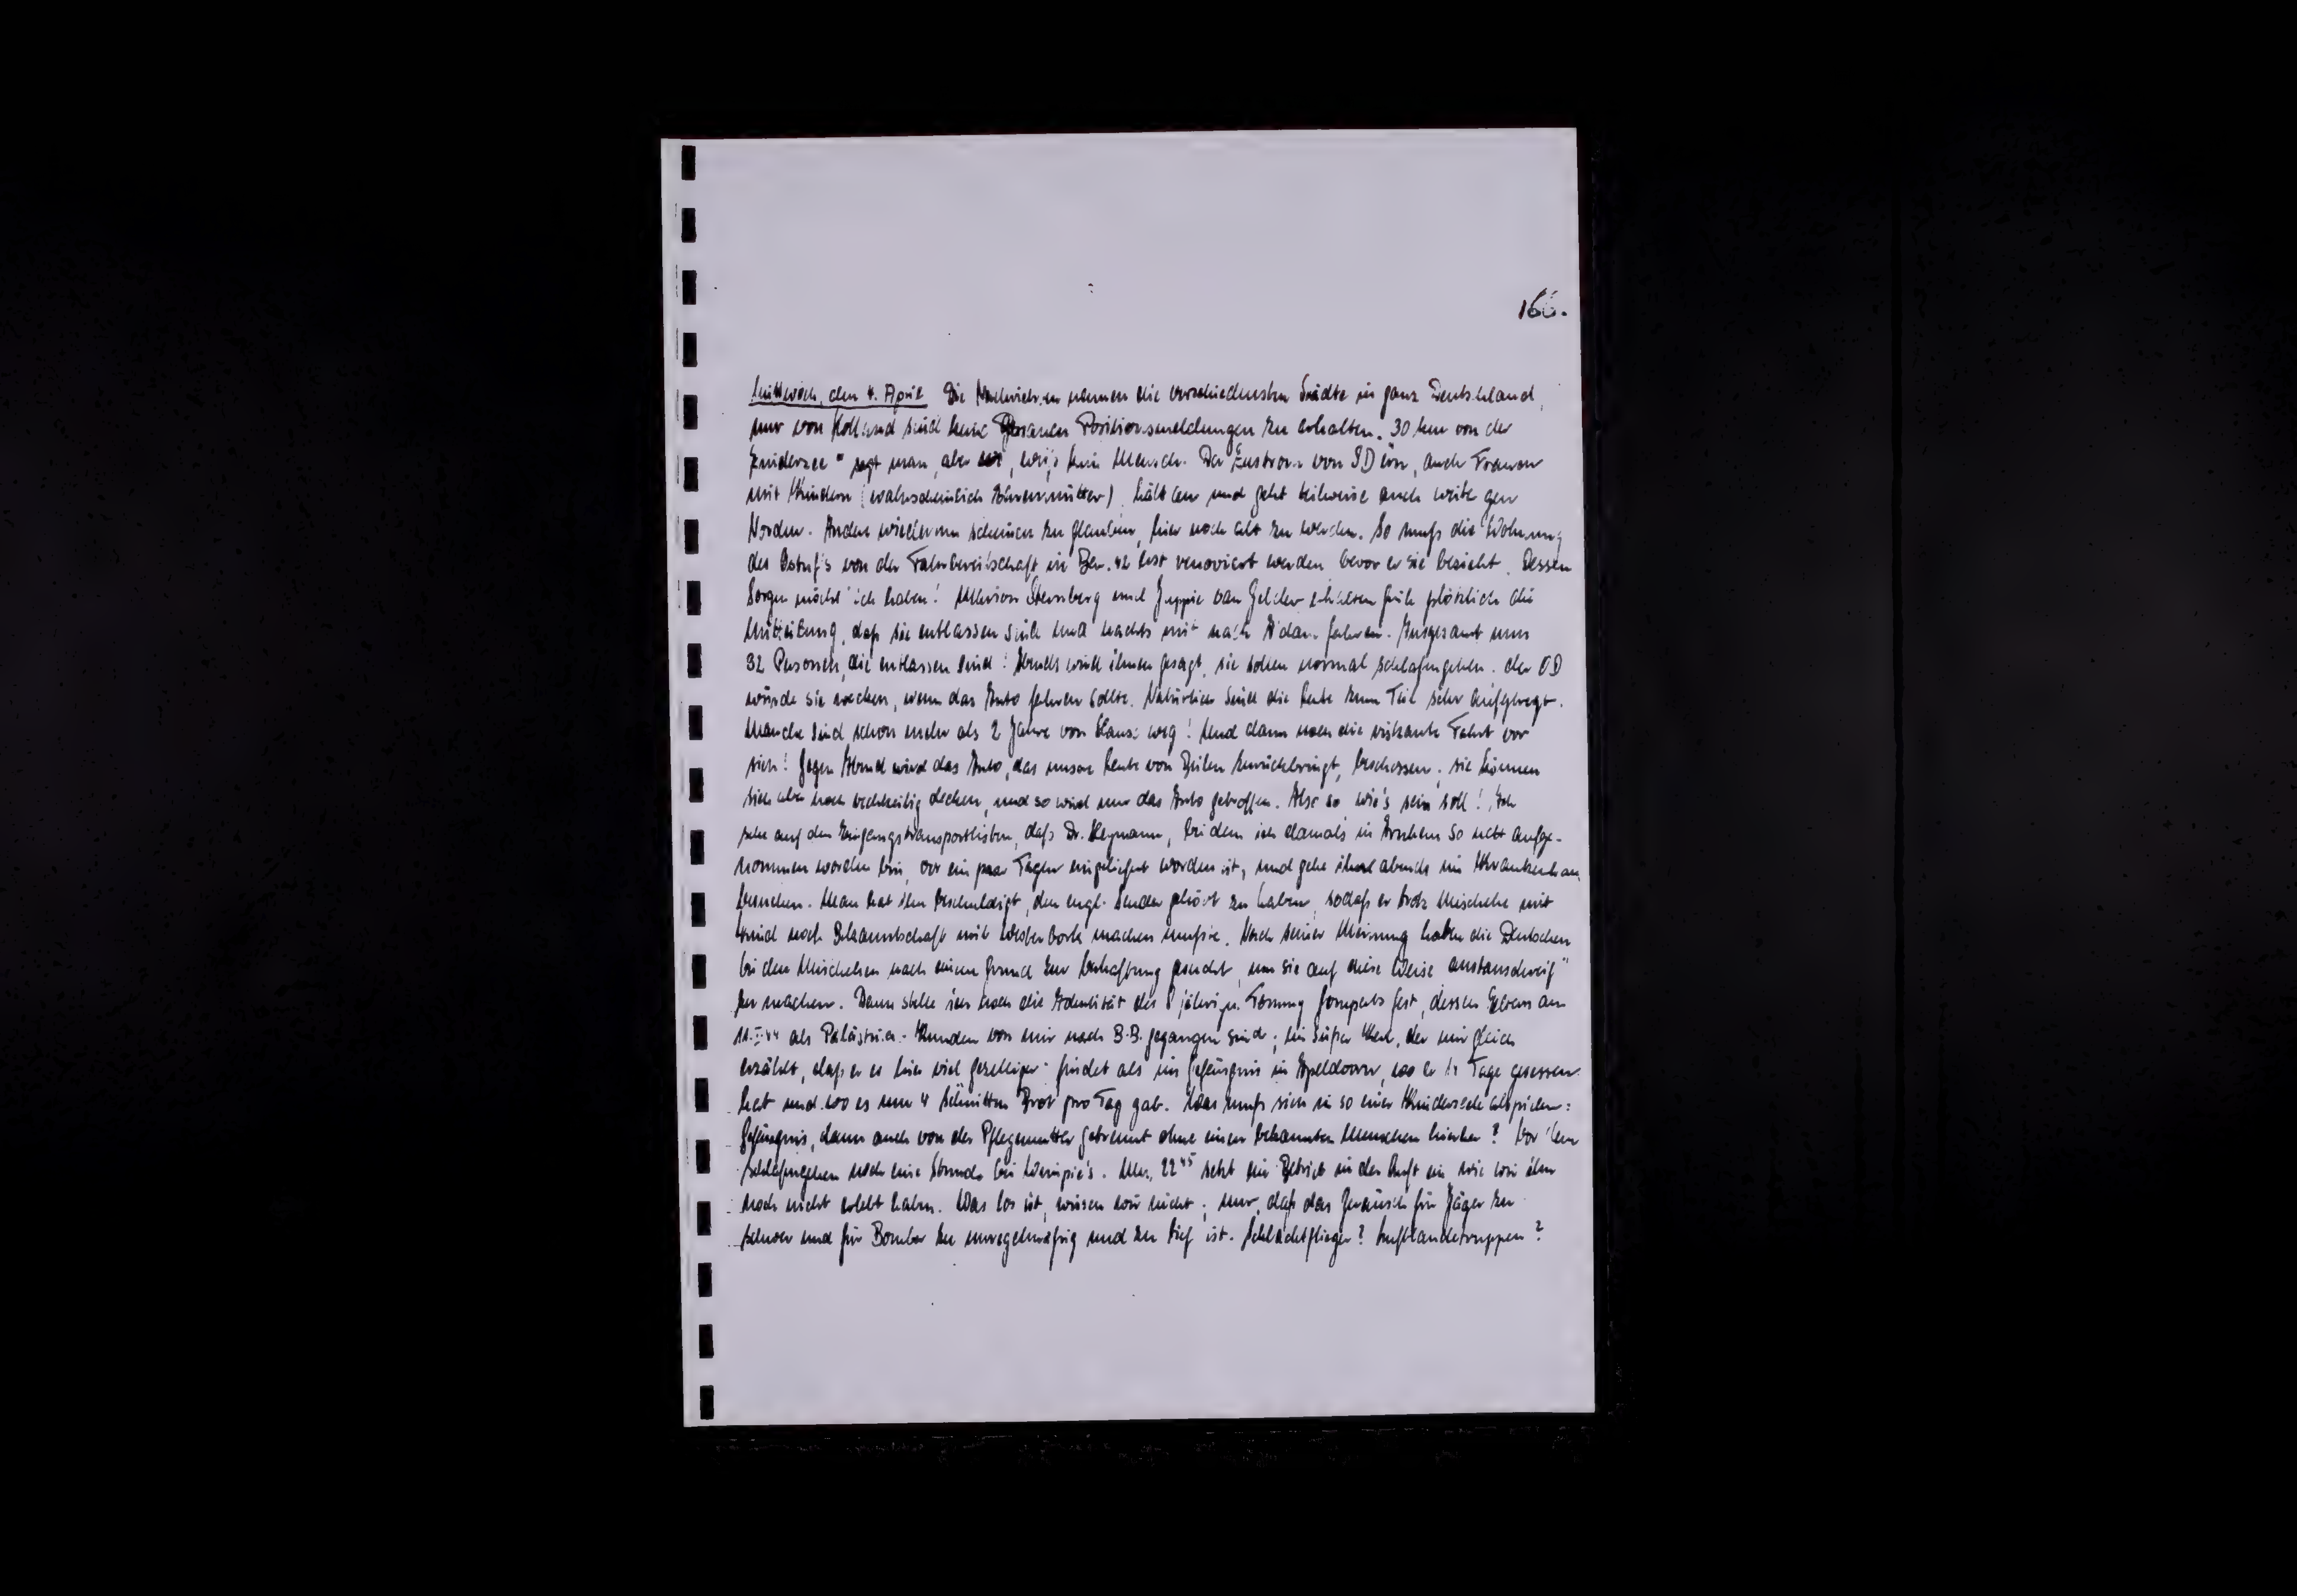 166.
Mittwoch, den 4. April Die Nachrichten nennen die verschiedensten Städte in ganz Deutschland,
nur von Holland sind keine genauen Positionsmeldungen zu erhalten. 30 km von der
Zuidersee" sagt man, aber wo, weiss kein Mensch. Der Zustrom von SD ern, auch Frauen
mit Kindern (wahrscheinlich Ehrenmütter), hält an und geht teilweise auch weiter gen
Norden. Andere wiederum scheinen zu glauben, hier noch alt zu werden. So muss die Wohnung
des Ostuf's von der Fahrbereitschaft in Bar. 42 erst renoviert werden bevor er sie bezieht. Dessen
Sorgen möcht' ich haben! Miriam Sternberg und Juppie van Gelder erhielten früh plötzlich die
Mitteilung, dass sie entlassen sind und nachts mit nach A'dam fahren. Insgesamt nun
32 Personen, die entlassen sind! Abends wird ihnen gesagt, sie sollen normal schlafengehen. der OD
würde sie wecken, wenn das Auto fahren sollte. Natürlich sind die Leute zum Teil sehr aufgeregt.
Manche sind schon mehr als 2 Jahre von Hause weg! Und dann noch die riskante Fahrt vor
sich! Gegen Abend wird das Auto, das unsere Leute von Zuilen zurückbringt, beschossen; sie können
sich aber noch rechtzeitig decken, und so wird nur das Auto getroffen. Also so wie's sein soll! Ich
sehe auf den Eingangstransportlisten, dass Dr. Heymann, bei dem ich damals in Arnhem so nett aufge-
nommen worden bin, vor ein paar Tagen eingeliefert worden ist, und gehe ihn abends im Krankenhaus
besuchen. Man hat ihn beschuldigt, den engl. Sender gehört zu haben, sodass er trotz Mischehe mit
Kind noch Bekanntschaft mit Westerbork machen musste. Nach seiner Meinung haben die Deutschen
bei den Mischehen nach einem Grund zur Verhaftung gesucht, um sie auf diese Weise austauschreif"
zu machen. Dann stelle ich noch die Identität des 8 jährigen fest, dessen Eltern am
11.I.44 als Palästina-Kunden von mir nach B.B. gegangen sind; ein süsser Kerl, der mir gleich
erzählt, dass er es hier viel geselliger findet als im Gefängnis in Apeldoorn, wo er 14 Tage gesessen
hat und wo es nur 4 Schnitten Brot pro Tag gab. Was muss sich in so einer Kinderseele abspielen:
Gefängnis, dann auch von der Pflegemutter getrennt ohne einen bekannten Menschen hierher? Vor dem
Schlafengehen noch eine Stunde bei Wimpie's. Um 22⁴⁵ setzt ein Betrieb in der Luft ein, wie wir ihn
noch nicht erlebt haben. Was los ist, wissen wir nicht; nur, dass das Geräusch für Jäger zu
schwer und für Bomber zu unregelmässig und zu tief ist. Schlachtflieger? Luftlandetruppen?